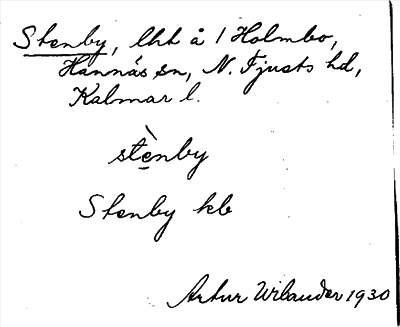 Stenby, lht å 1 Holmbo,
Hannäs sn, N. Tjusts hd,
Kalmar l.
stènby
Stenby kb
Artur Wilander 1930